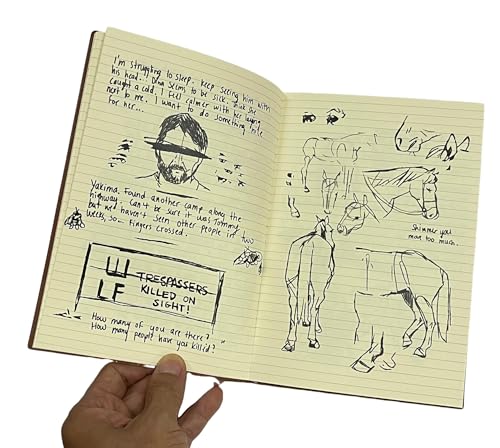 I'm struggling to sleep. keep seeing him with
his head... Dina seems to be sick. think she
caught a cold. I feel calmer with her laying
next to me. I want to do something nice
for her...
Yakima. Found another camp along the
highway. Can't be sure it was Tommy
but we haven't seen other people in
weeks, so... fingers crossed.
W TRESPASSERS
LF KILLED ON
SIGHT!
How many of you are there?
How many people have you killed?
Shimmer you
moo too much..